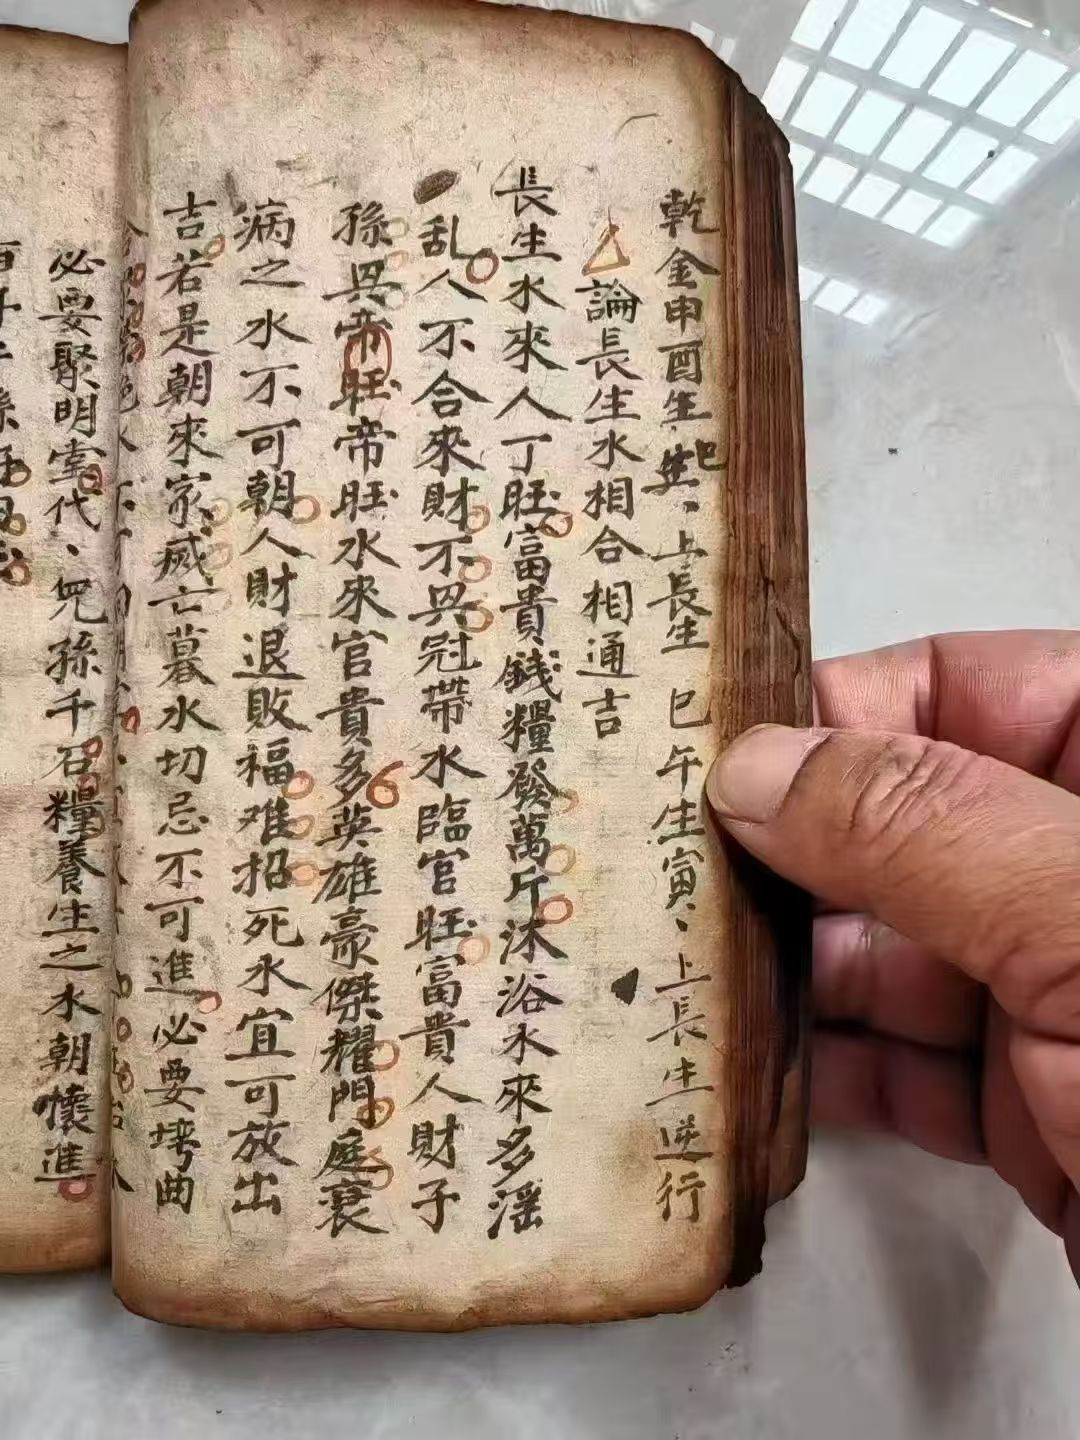 乾金申酉生巽、巳上長生 巳午生寅、上長生逆行
論長生水相合相通吉
長生水來人丁旺富貴錢糧發萬斤沐浴水來多淫
乱人不合來財不畏冠帶水臨官旺富貴人財子
孫畏帝旺帝旺水來官貴多英雄豪傑耀門庭衰
病之水不可朝人財退敗福难招死水宜可放出
吉若是朝來家滅亡暮水切忌不可進必要塆曲
必要聚明堂代、兒孫千石糧養生之水朝懷進